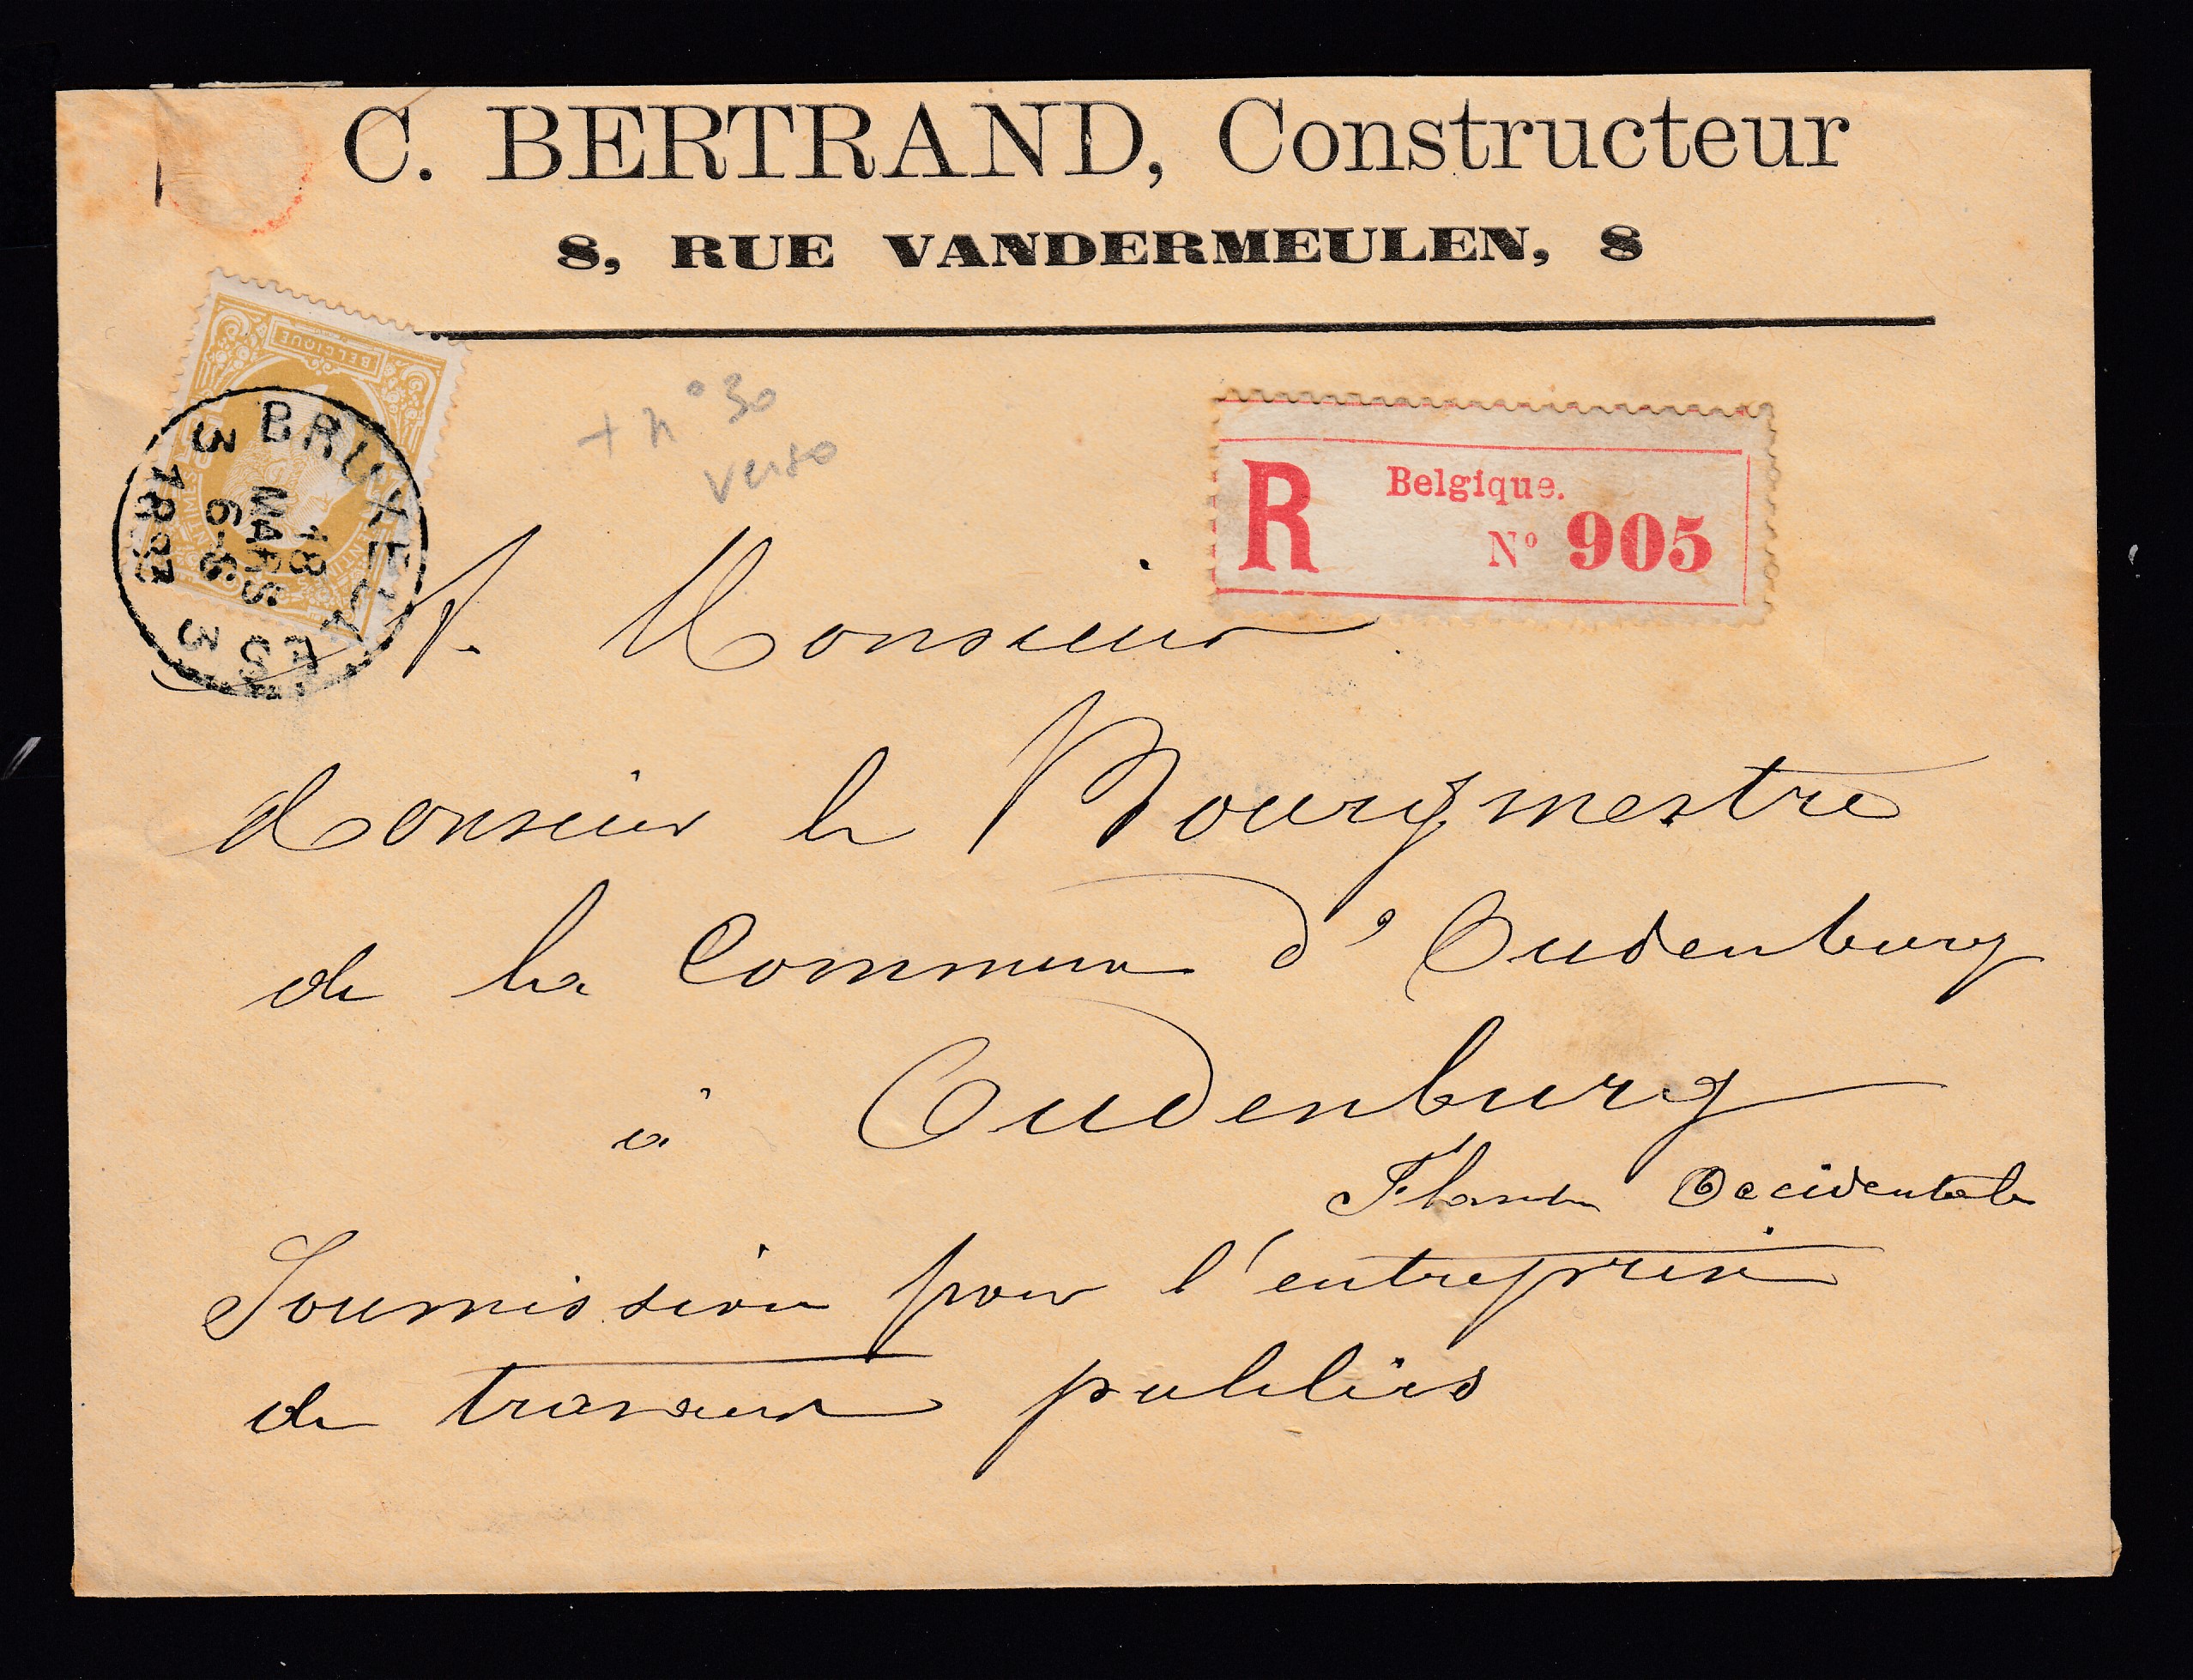 C. BERTRAND, Constructeur
8, RUE VANDERMEULEN, 8
BELGIQUE
BRUXELLES
3 3
18 MARS
6-S
+ n° 30
verso
R Belgique.
N° 905
A Monsieur
Monsieur le Bourgmestre
de la Commune d'Oudenburg
à Oudenburg
Flandre Occidentale
Soumission pour l'entreprise
de travaux publics